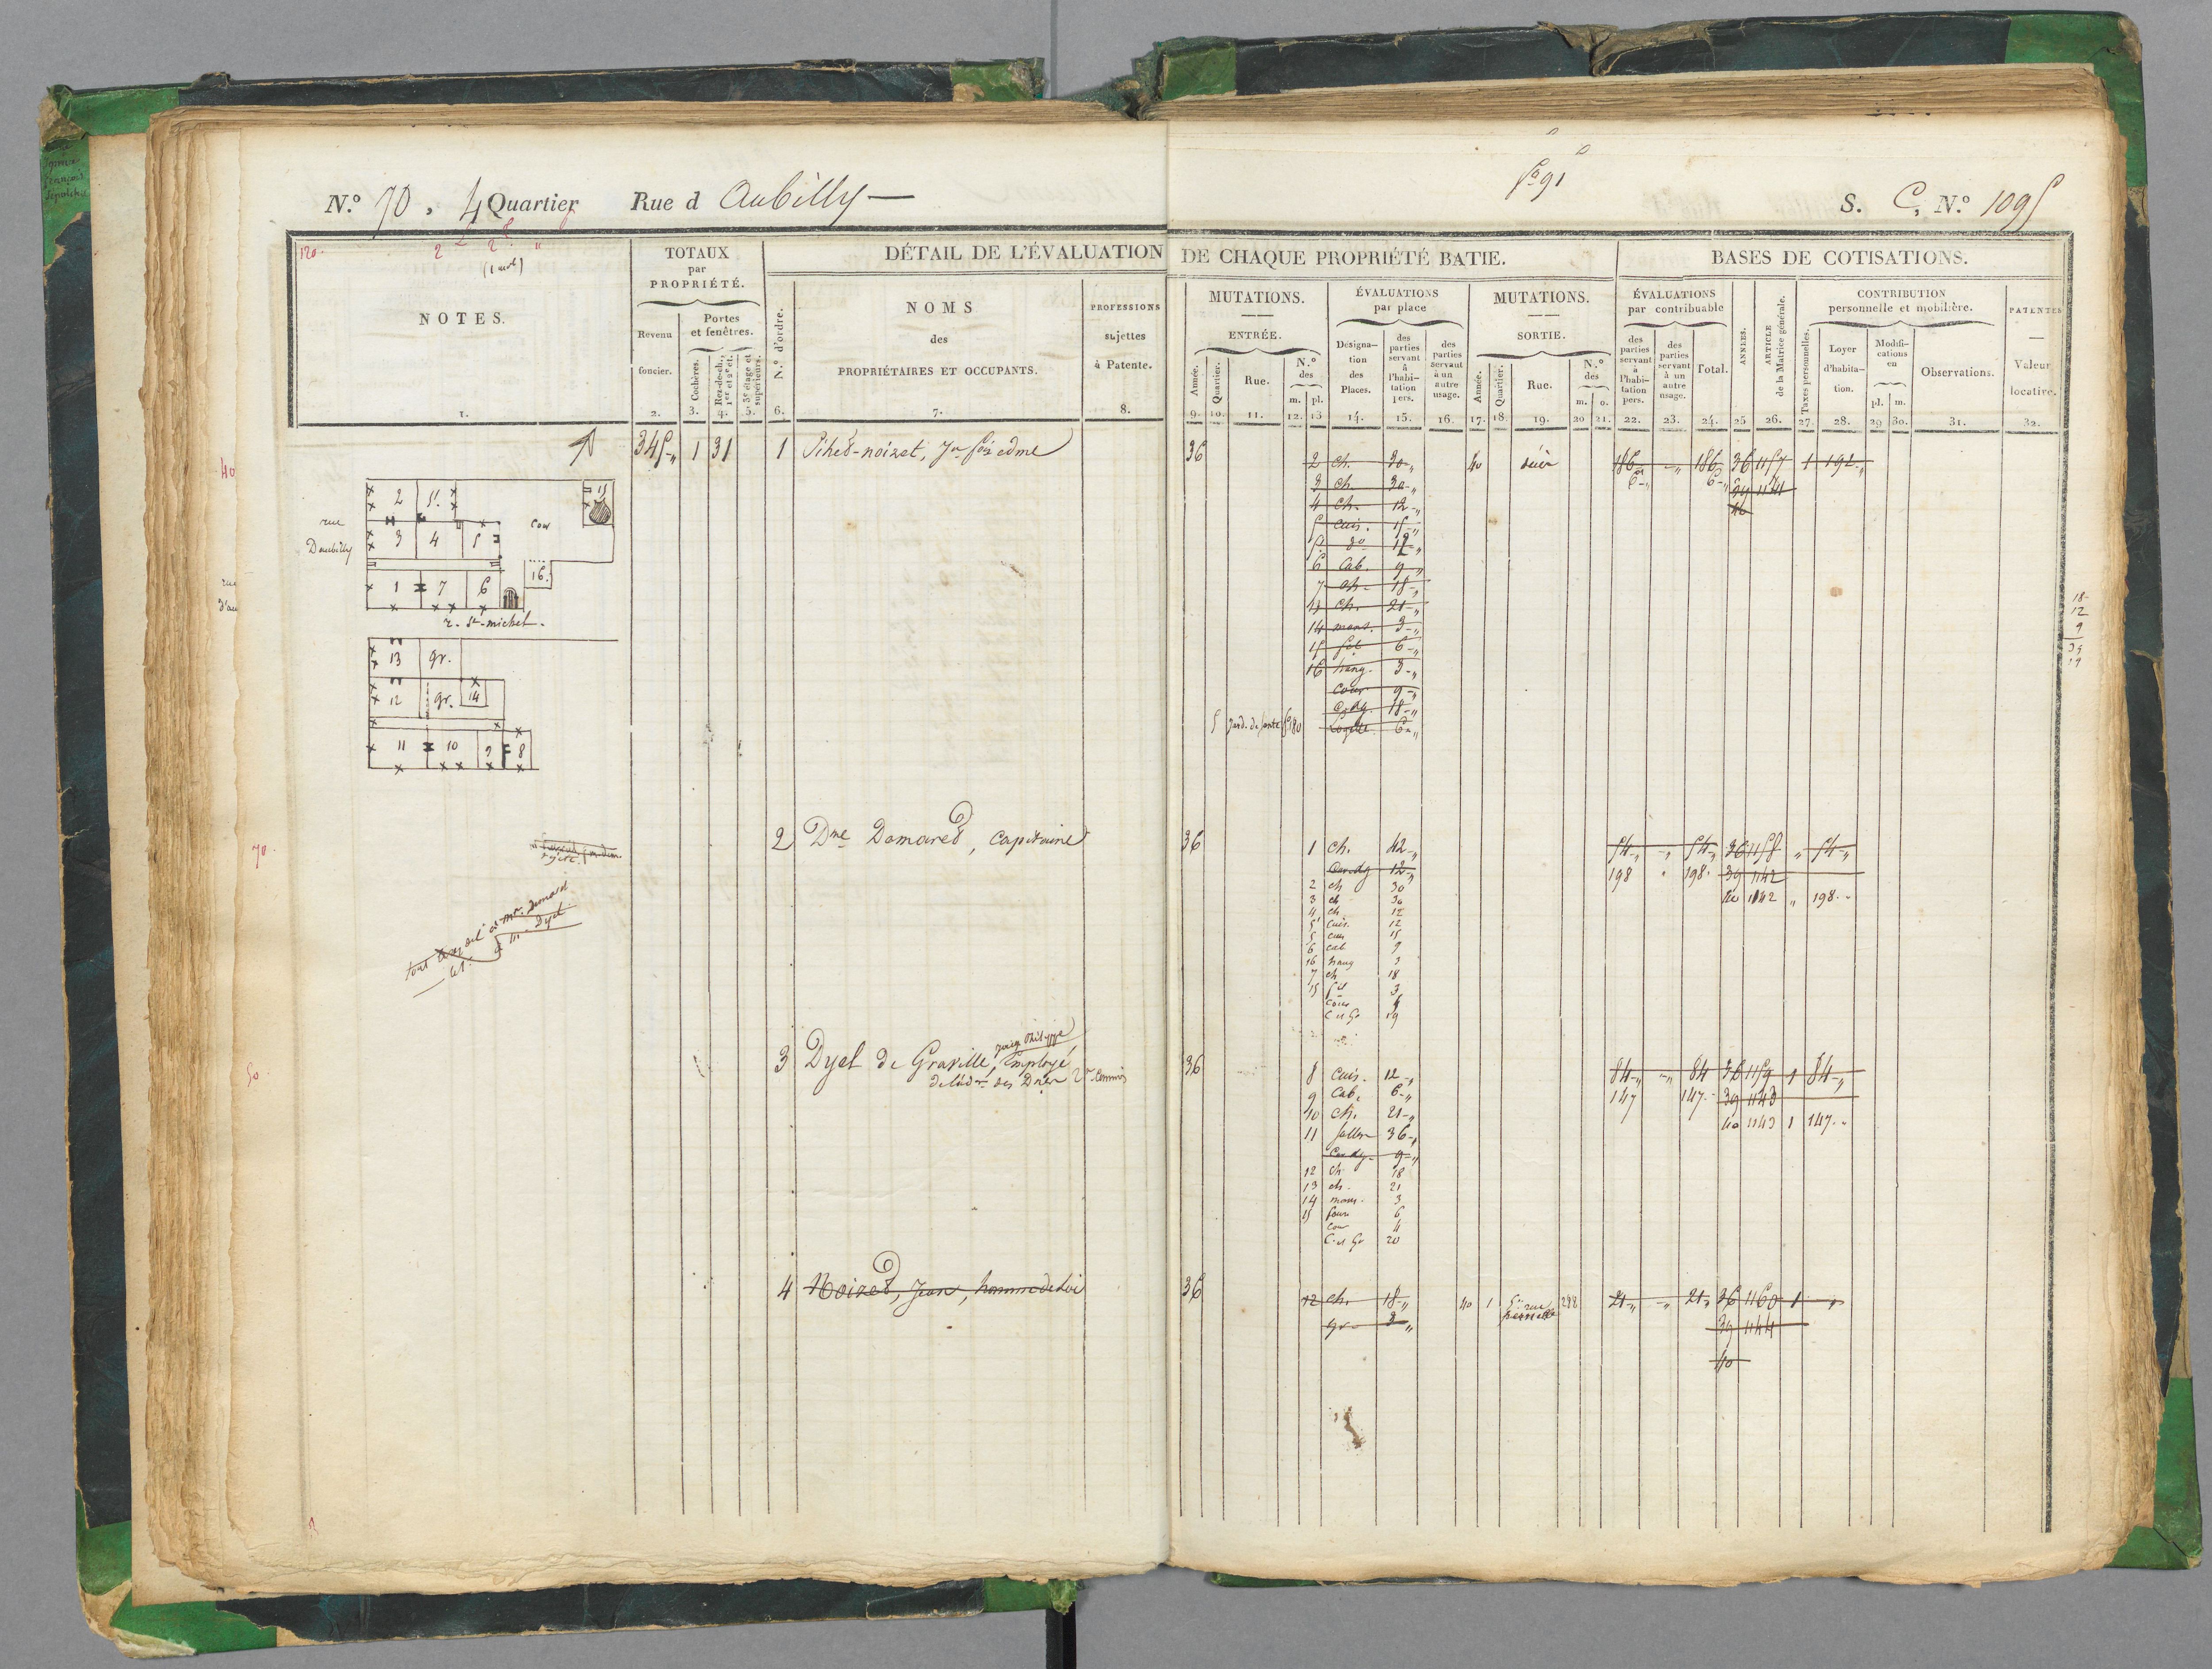 N.º 70, 4 Quartier Rue d Aubilly
S. C, N.º 1095
120.
(1 arch)
NOTES.
1.
TOTAUX
par
PROPRIÉTÉ.
Revenu
foncier.
2.
Portes
et fenêtres.
Cochères.
3.
Rez-de-ch., 1er et 2e ét.
4.
3e étage et supérieurs.
5.
DÉTAIL DE L'ÉVALUATION DE CHAQUE PROPRIÉTÉ BATIE.
N.º d'ordre.
6.
NOMS
des
PROPRIÉTAIRES ET OCCUPANTS.
7.
PROFESSIONS
sujettes
à Patente.
8.
MUTATIONS.
ENTRÉE.
Année.
9.
Quartier.
10.
Rue.
11.
N.º
des
m. pl.
12. 13
ÉVALUATIONS
par place
Désigna-
tion
des
Places.
14.
des
parties
servant
à
l'habi-
tation
pers.
15.
des
parties
servant
à un
autre
usage.
16.
MUTATIONS.
SORTIE.
Année.
17.
Quartier.
18.
Rue.
19.
N.º
des
m. o.
20 21.
BASES DE COTISATIONS.
ÉVALUATIONS
par contribuable
des
parties
servant
à
l'habi-
tation
pers.
22.
des
parties
servant
à un
autre
usage.
23.
Total.
24.
ANNÉES.
25
ARTICLE
de la Matrice générale.
26.
CONTRIBUTION
personnelle et mobilière.
Taxes personnelles.
27.
Loyer
d'habita-
tion.
28.
Modifi-
cations
en
pl. m.
29 30.
Observations.
31.
PATENTES
Valeur
locative.
32.
345 1 31
1 Pihet-noizet,
36
2 ch. 30
3 ch. 30
4 ch. 12
5 cuis. 15
5 do 12
6 Cab. 9
7 ch. 18
13 ch. 21
14 mans. 3
15 6
16 hang. 3
Cour 9
18
6
40
186 186 36 1157 1 192
6 6 39 1141
40
rue
Daubilly
2 5'
3 4 5
1 7 6
cour
15
16.
r. St-michel.
13 gr.
12 gr. 14
11 10 9 8
2 Dme Domared, capitaine
36
1 ch. 42
12
2 ch 30
3 ch 30
4 ch 12
5' cuis. 12
5 cuis 15
6 cab 9
16 hang 3
7 ch 18
15 3
Cour
C et Gr 19
54 54 36 1158 54
198 198 39 1142
40 1142 198
3 Dyel de Graville, employé
36
8 Cuis. 12
9 Cab. 6
10 ch. 21
11 Sallon 36
9
12 ch 18
13 ch. 21
14 mans. 3
15 6
Cour 4
C. et Gr 20
84 84 36 1159 1 84
147 147 39 1143
40 1143 1 147
4 Noized, Jean, homme de loi
36
12 ch. 18
gr 3
40 1 288
21 21 36 1160 1
39 1144
40
18
12
9
39
40
70
50